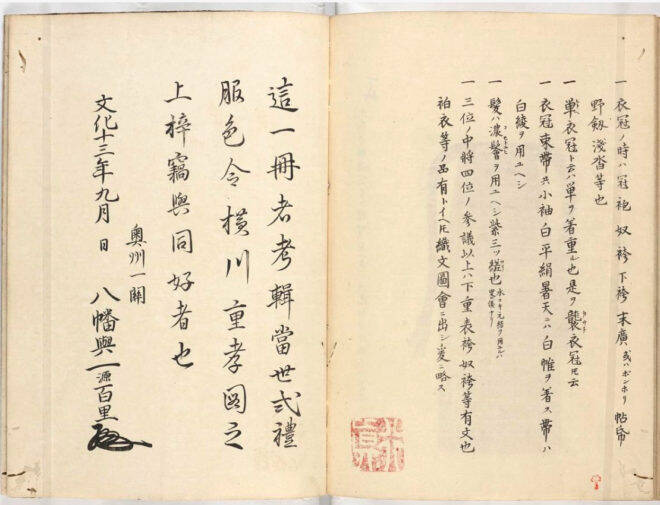 一 衣冠ノ時ハ冠 袍 奴袴 下袴 末廣 或ハボンボリ 帖帋
野劔 淺沓等也
一 単衣冠ト云ハ単ヲ着重ル也是ヲ襲衣冠トモ云
一 衣冠束帯共小袖白平絹暑天ニハ白帷ヲ着ス帯ハ
白綾ヲ用ユヘシ
一 髪ハ濃髻ヲ用ユヘシ紫三ツ也
一 三位ノ中将四位ノ参議以上ハ下重表袴奴袴等有文也
袙衣等ノ品有トイヘトモ織文圖會ニ出シ爰ニ略ス
這一冊者考輯當世弐禮
服色令横川重孝図之
上梓竊與同好者也
奥州一關
文化十三年九月 日 八幡與一源百里